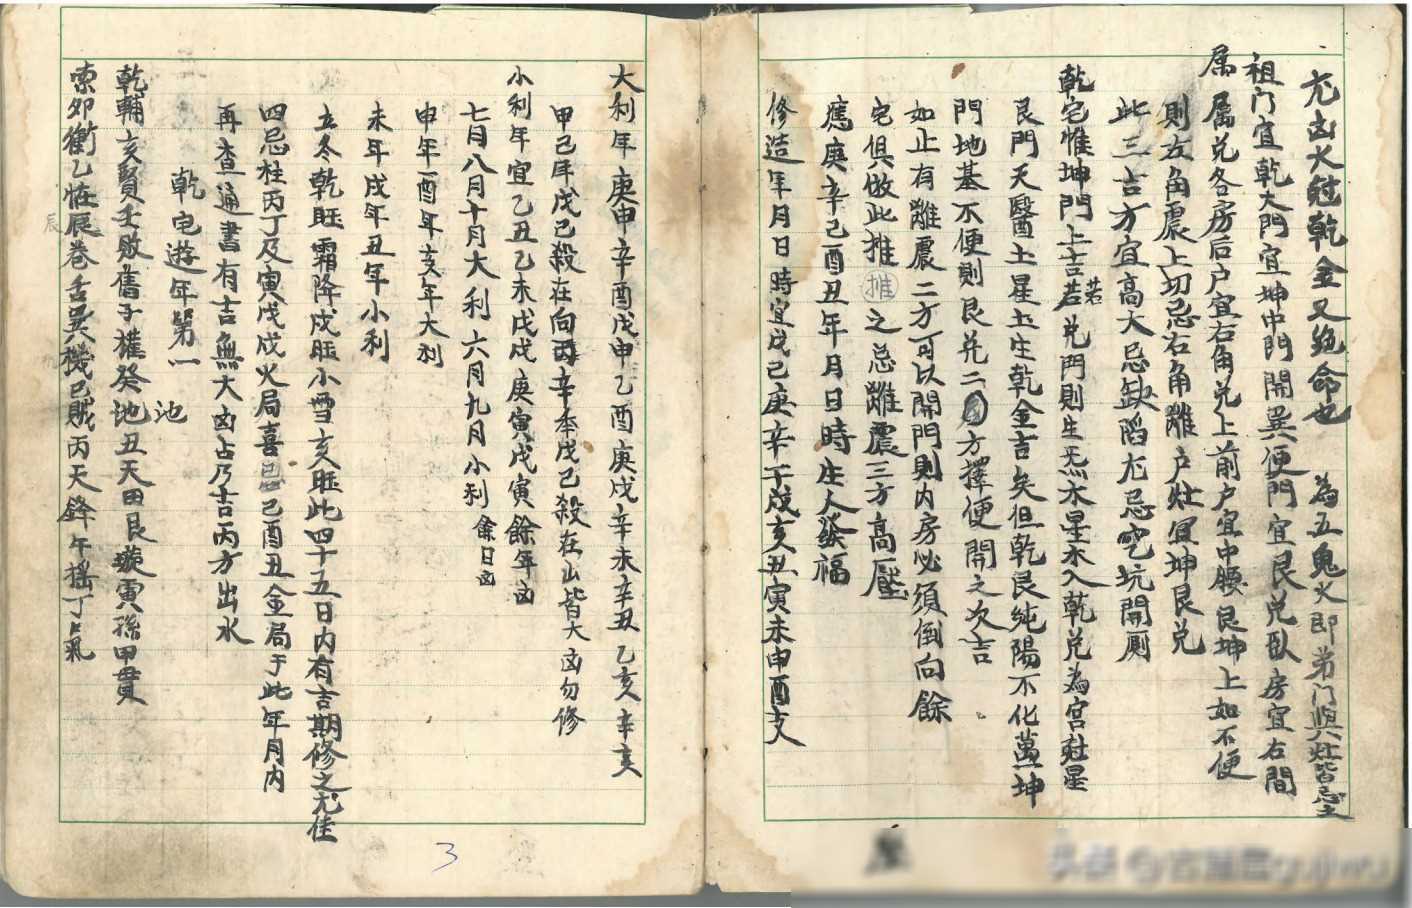 尤凶火尅乾金又絶命也　為五鬼火即弟门與灶皆忌之
祖门宜乾大門宜坤中門開巽便門宜艮兌卧房宜右間
属
属兑各房后户宜右角兑上前户宜中腰艮坤上如不便
則左角震上切忌右角離户灶宜坤艮兑
此三吉方宜高大忌缺陷尤忌空坑開厠
乾宅惟坤門上吉若兑門則生炁水星水入乾兑為宫尅星
若
艮門天醫土星土生乾金吉矣但乾艮純陽不化萬坤
門地基不便則艮兑二方擇便開之次吉
如止有離震二方可以開門則内房必須倒向餘
宅俱倣此推之忌離震三方高壓
推
應庚辛己酉丑年月日時生人發福
修造年月日時宜戊己庚辛干戊亥丑寅未申酉支
大利年庚申辛酉戊申乙酉庚戌辛未辛丑乙亥辛亥
甲己年戊己殺在向丙辛季戊己殺在山皆大凶勿修
小利年宜乙丑乙未戊戌庚寅戊寅餘年凶
七月八月十月大利六月九月小利餘日凶
申年酉年亥年大利
未年戌年丑年小利
立冬乾旺霜降戌旺小雪亥旺此四十五日内有吉期修之尤佳
四忌柱丙丁及寅戌戊火局喜己酉丑金局于此年月内
再查通書有吉無大凶占乃吉丙方出水
乾宅遊年第一
池
乾輔亥賢壬敗舊子權癸地丑天田艮璇寅孫甲貫
索卯衝乙惟辰卷舌巽機巳賊丙天鋒午搖丁
辰
3